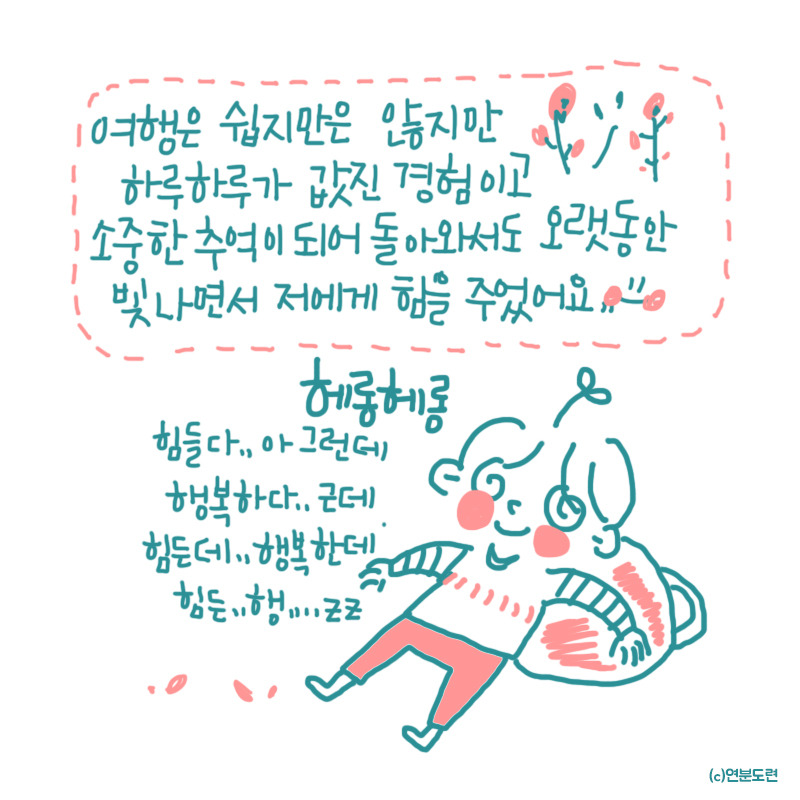 여행은 쉽지만은 않지만
하루하루가 값진 경험이고
소중한 추억이 되어 돌아와서도 오랫동안
빛나면서 저에게 힘을 주었어요,,
헤롱헤롱
힘들다.. 아 그런데
행복하다.. 근데
힘든데.. 행복한데
힘든..행....zz
(c)연분도련